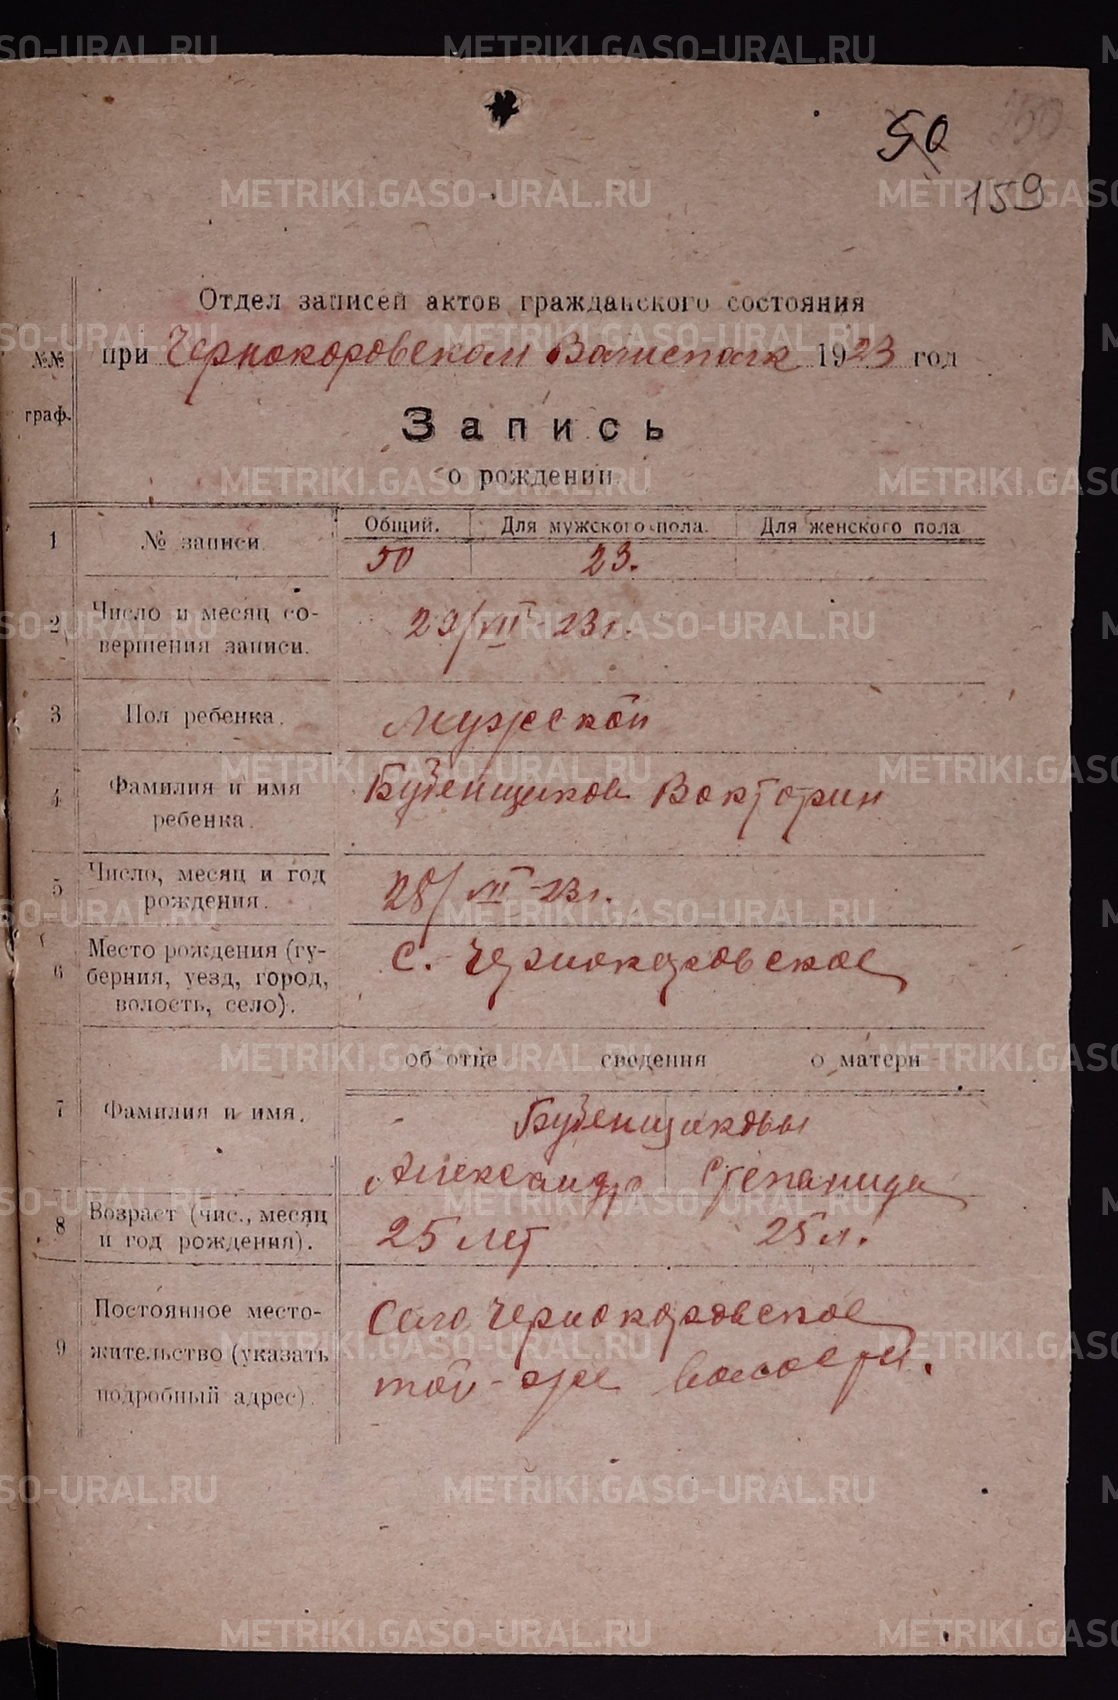 50
159
Отдел записей актов гражданского состояния
№№ граф.
при Чернокоровском Волисполк 1923 год
Запись
о рождении.
1 № записи. Общий. Для мужского пола. Для женского пола
50 23.
2 Число и месяц со-
вершения записи. 29/VII-23г.
3 Пол ребенка. Мужской
4 Фамилия и имя
ребенка. Бубенщиков Викторин
5 Число, месяц и год
рождения. 28/VII-23г.
6 Место рождения (гу-
берния, уезд, город,
волость, село). с. Чернокоровское
об отце сведения о матери
7 Фамилия и имя. Бубенщиковы
Александр Степанида
8 Возраст (чис., месяц
и год рождения). 25 лет 25 л.
9 Постоянное место-
жительство (указать
подробный адрес). Село Чернокоровское
той-же волости.
METRIKI.GASO-URAL.RU